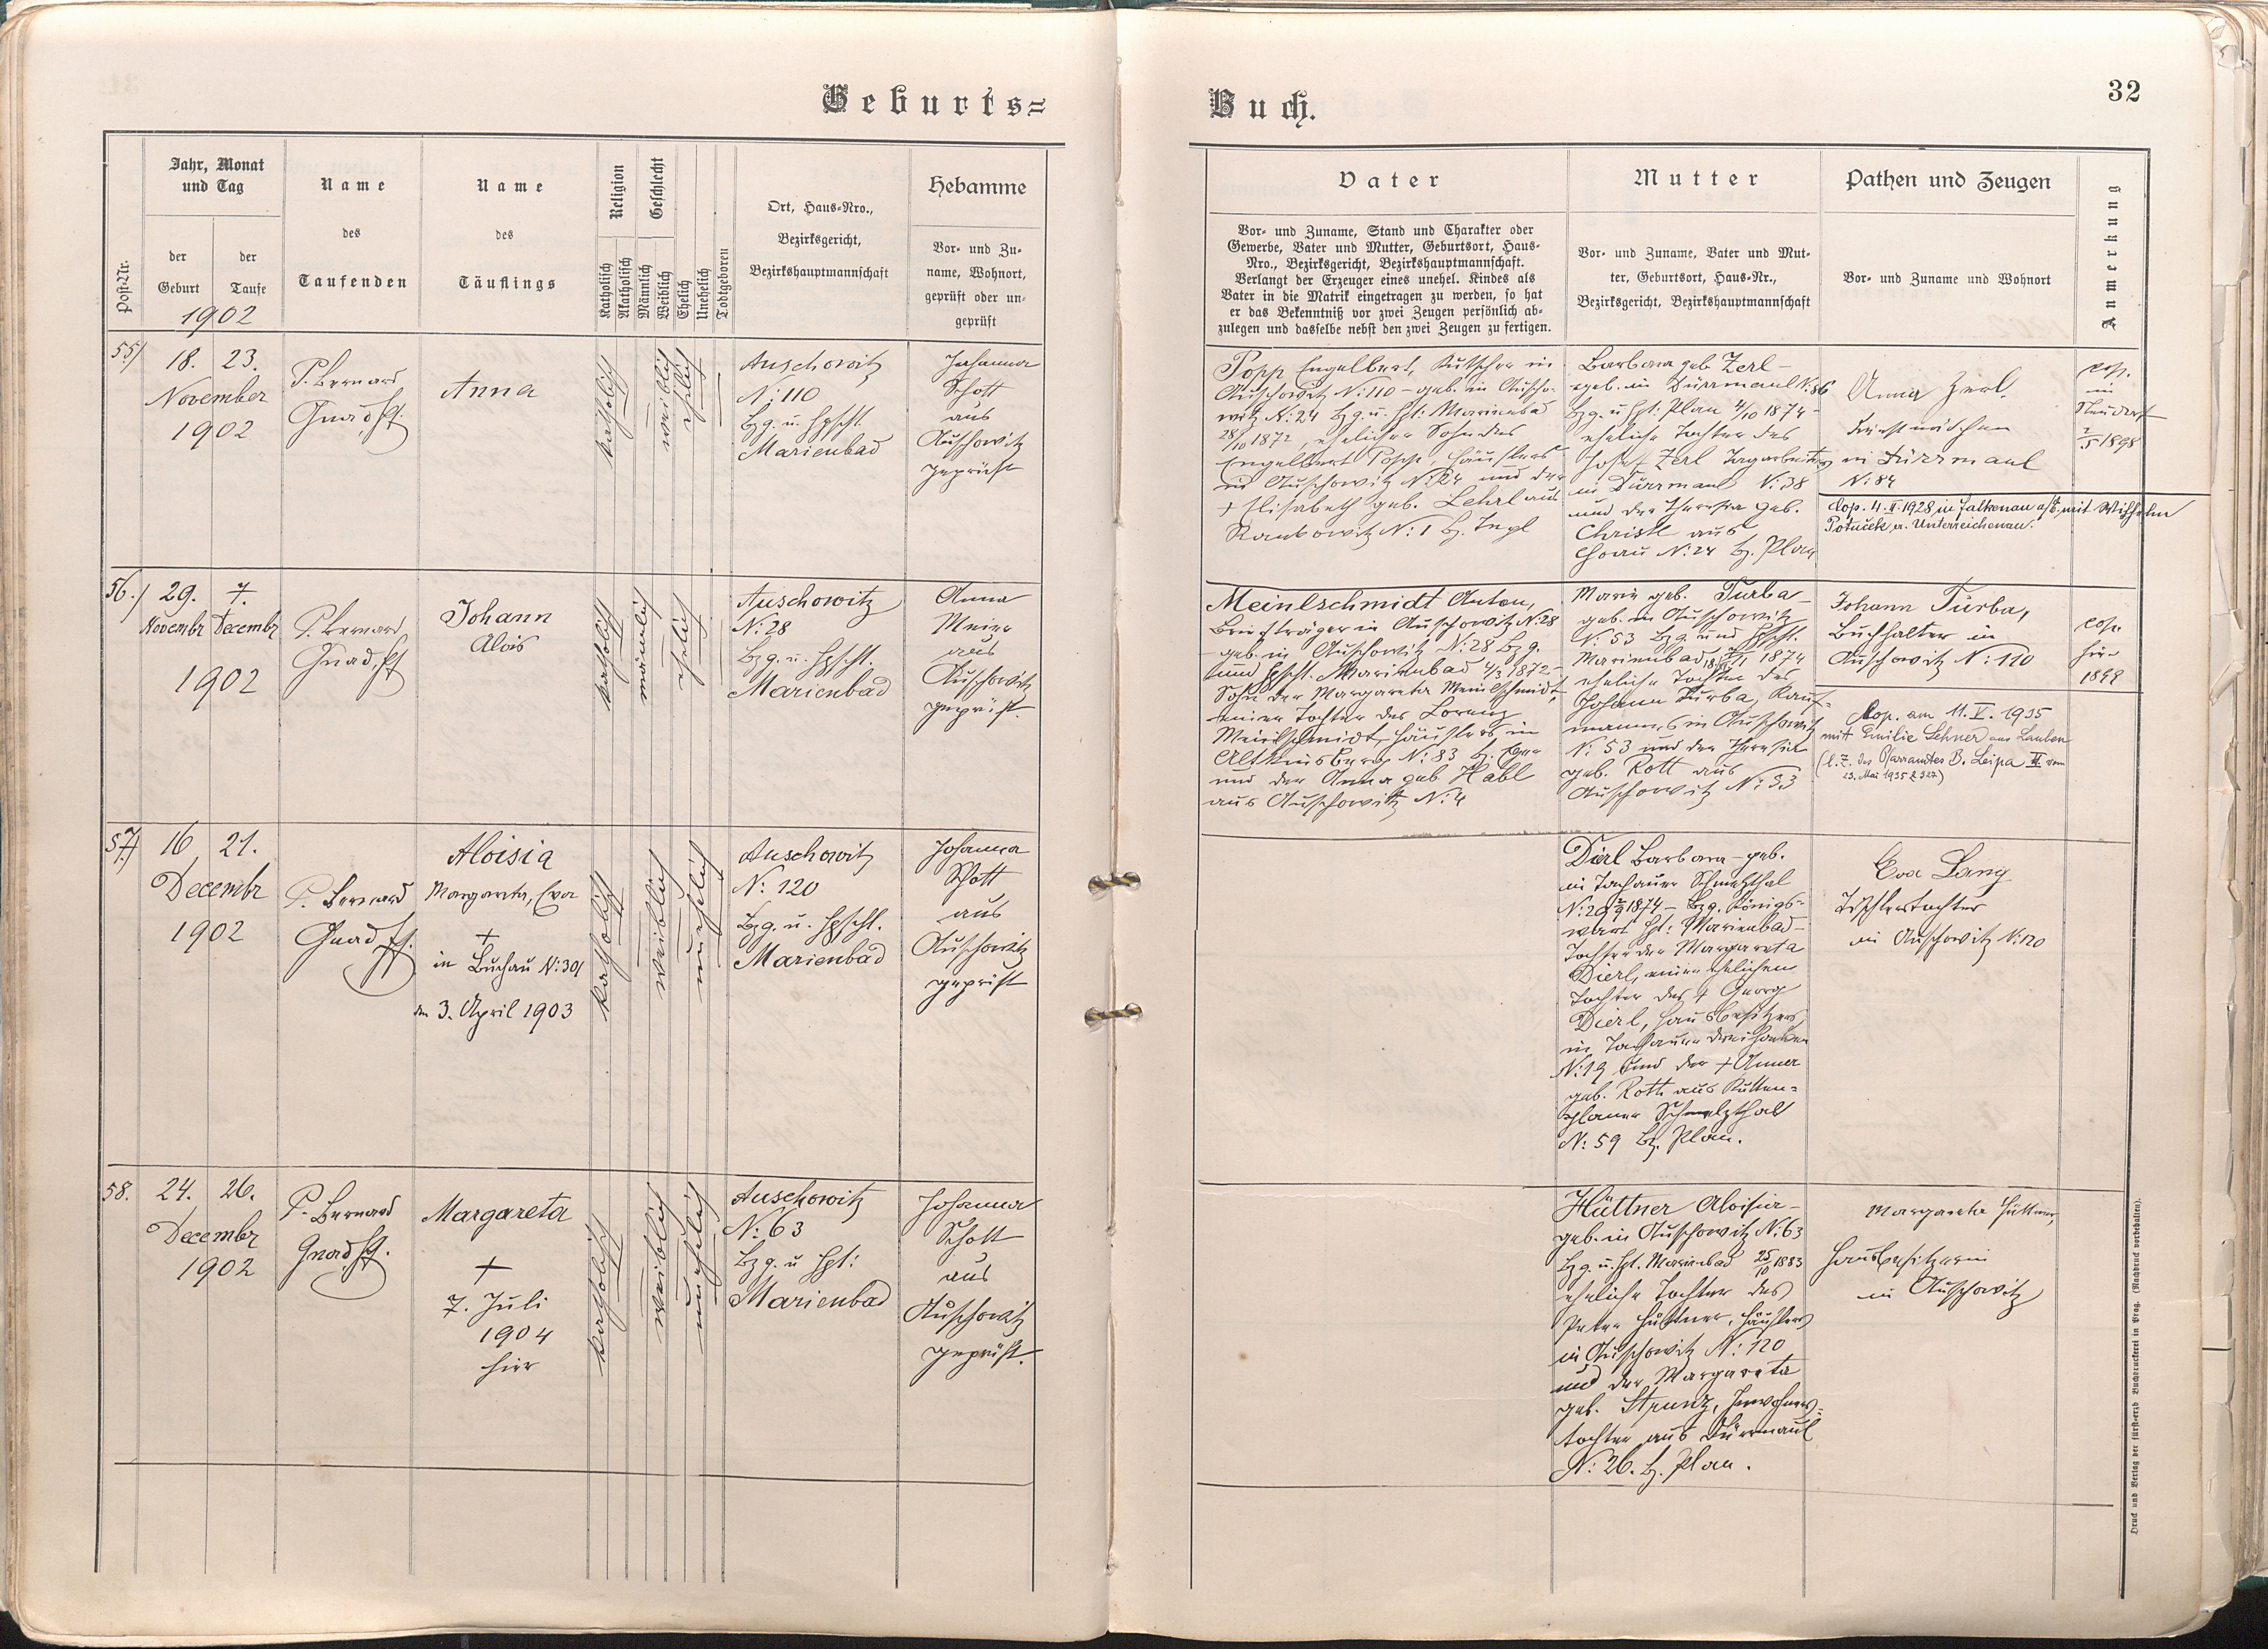 Geburts=
Buch.
32
Post-Nr.
Jahr, Monat
und Tag
der
Geburt
der
Taufe
1902
Name
des
Taufenden
Name
des
Täuflings
Religion
Katholisch
Akatholisch
Geschlecht
Männlich
Weiblich
Ehelich
Unehelich
Todtgeboren
Ort, Haus-Nro.,
Bezirksgericht,
Bezirkshauptmannschaft
Hebamme
Vor- und Zu-
name, Wohnort,
geprüft oder un-
geprüft
Vater
Vor- und Zuname, Stand und Charakter oder
Gewerbe, Vater und Mutter, Geburtsort, Haus-
Nro., Bezirksgericht, Bezirkshauptmannschaft.
Verlangt der Erzeuger eines unehel. Kindes als
Vater in die Matrik eingetragen zu werden, so hat
er das Bekenntniß vor zwei Zeugen persönlich ab-
zulegen und dasselbe nebst den zwei Zeugen zu fertigen.
Mutter
Vor- und Zuname, Vater und Mut-
ter, Geburtsort, Haus-Nr.,
Bezirksgericht, Bezirkshauptmannschaft
Pathen und Zeugen
Vor- und Zuname und Wohnort
Anmerkung
55/
18. 23.
November
1902
P. Bernard
Gnad,
Anna
katholisch
weiblich
ehelich
Auschowitz
N: 110
Bzg. u. Hpschft.
Marienbad
Johanna
Schott
aus
Auschowitz
geprüft
Popp Engelbert, Kutscher in
Auschowitz N: 110 - geb. in Auscho-
witz N: 24 Bzg. u. Hpt: Marienbad
28/10 1872, ehelicher Sohn des
Engelbert Popp, Häuslers
in Auschowitz N: 24 und der
+ Elisabeth geb. Lehrl aus
N: 1 Bz. Tepl
Barbara geb Zerl -
geb. in Dürrmaul N: 86
Bzg. u Hpt: Plan 4/10 1874 -
eheliche Tochter des
Josef Zerl Tagarbeiters
in Dürrmaul N: 38
und der Theresia geb.
Christl aus
N: 24 Bz. Plan
Anna Zerl.
Dienstmädchen
in Dürrmaul
N: 84
cop.
in
Neudorf
2/5 1898
Cop. 4. II. 1928 in Falkenau a/E, mit Wilhelm
Potuček, a. Unterreichenau.
56./
29. 7.
Novembr Decembr
1902
P. Bernard
Gnad,
Johann
Alois
katholisch
männlich
ehelich
Auschowitz
N: 28
Bzg. u. Hpschft.
Marienbad
Anna
aus
Auschowitz
geprüft.
Meinlschmidt Anton,
Briefträger in Auschowitz N: 28
geb. in Auschowitz N: 28 Bzg.
und Hpschft. Marienbad 4/3 1872 -
Sohn der Margareta Meinlschmidt,
einer Tochter des Lorenz
Meinlschmidt, Häuslers in
Altkinsberg N: 83 Bz. Eger
und der Anna geb. Habl
aus Auschowitz N: 4
Marie geb. Turba -
geb. in Auschowitz
N: 53 Bzg. und Hpschft.
Marienbad 1874
eheliche Tochter des
Johann Turba, Kauf-
mannes in Auschowitz
N: 53 und der Theresia
geb. Rott aus
Auschowitz N: 33
Johann Turba,
Buchhalter in
Auschowitz N: 110
cop.
hier
1898
Cop. am 11. V. 1935
mit Emilie Lehner aus Lauben
(l. Z. des Pfarramtes B. Leipa II vom
23. Mai 1935 Z 327)
57/
16 21.
Decembr
1902
P. Bernard
Gnad,
Aloisia
Margareta, Eva
+
in Buchau N: 301
den 3. April 1903
katholisch
weiblich
unehelich
Auschowitz
N: 120
Bzg. u. Hpschft.
Marienbad
Johanna
Schott
aus
Auschowitz
geprüft
Dierl Barbara - geb.
in Tachauer Schmelzthal
1874 - Bzg. Königs-
wart Hpt: Marienbad -
Tochter der Margareta
Dierl, einer ehelichen
Tochter des + Georg
Dierl, Hausbesitzers
in Tachauer
N: 19 und der + Anna
geb. Roth aus Kutten-
planer Schmelzthal
N: 59 Bz. Plan.
Eva Lang
Tischlerstochter
in Auschowitz N: 120
58.
24. 26.
Decembr
1902
P. Bernard
Gnad,
Margareta
+
7. Juli
1904
hier
katholisch
weiblich
unehelich
Auschowitz
N: 63
Bzg. u Hpt:
Marienbad
Johanna
Schott
aus
Auschowitz
geprüft.
Hüttner Aloisia -
geb. in Auschowitz N: 63
Bzg. u. Hpt. Marienbad 25/10 1883
eheliche Tochter des
Peter Hüttner, Häuslers
in Auschowitz N: 120
und der Margareta
geb. Strunz, Inwohners-
tochter aus Dürrmaul
N: 26. Bz. Plan.
Margareta Hüttner,
Hausbesitzerin
in Auschowitz
Druck und Verlag der fürst-erzb Buchdruckerei in Prag. (Nachdruck vorbehalten).